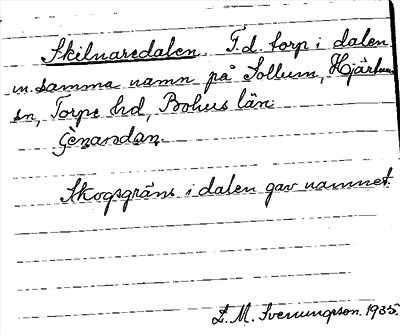 Skilnaredalen. F.d. torp i dalen
m. samma namn på Sollum, Hjärtum
sn, Torpe hd, Bohus län.
Skogsgräns i dalen gav namnet.
L. M. Svenungsson. 1935.